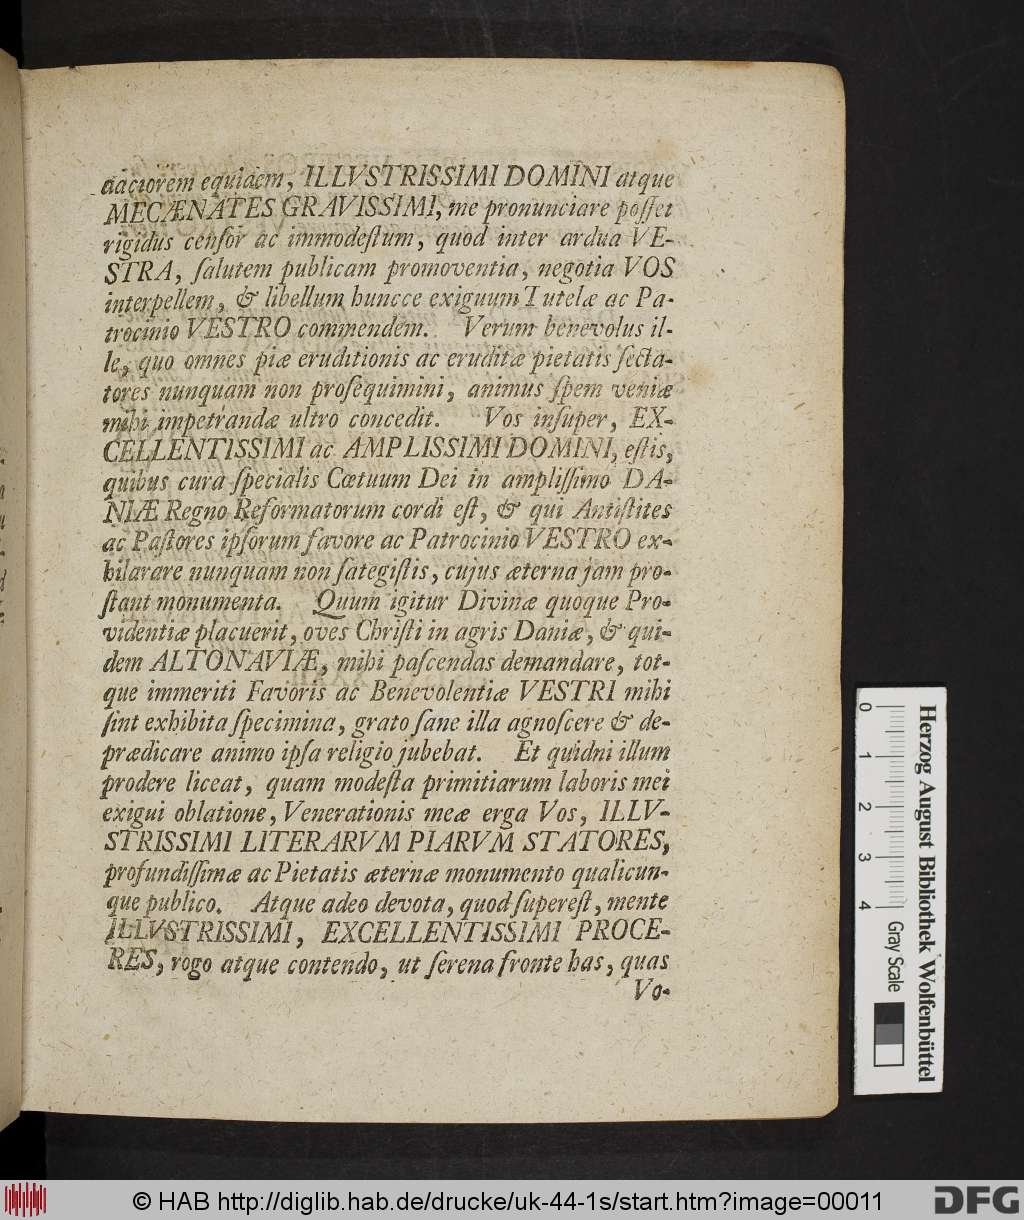 daciorem equidem, ILLVSTRISSIMI DOMINI atque
MECÆNATES GRAVISSIMI, me pronunciare posſet
rigidus cenſor ac immodeſtum, quod inter ardua VE-
STRA, ſalutem publicam promoventia, negotia VOS
interpellem, & libellum huncce exiguum Tutelæ ac Pa-
trocinio VESTRO commendem. Verum benevolus il-
le, quo omnes piæ eruditionis ac eruditæ pietatis ſecta-
tores nunquam non proſequimini, animus ſpem veniæ
mihi impetrandæ ultro concedit. Vos inſuper, EX-
CELLENTISSIMI ac AMPLISSIMI DOMINI, eſtis,
quibus cura ſpecialis Cœtuum Dei in ampliſſimo DA-
NIÆ Regno Reformatorum cordi eſt, & qui Antiſtites
ac Paſtores ipſorum favore ac Patrocinio VESTRO ex-
hilarare nunquam non ſategiſtis, cujus æterna jam pro-
ſtant monumenta. Quum igitur Divinæ quoque Pro-
videntiæ placuerit, oves Chriſti in agris Daniæ, & qui-
dem ALTONAVIÆ, mihi paſcendas demandare, tot-
que immeriti Favoris ac Benevolentiæ VESTRI mihi
ſint exhibita ſpecimina, grato ſane illa agnoſcere & de-
prædicare animo ipſa religio jubebat. Et quidni illum
prodere liceat, quam modeſta primitiarum laboris mei
exigui oblatione, Venerationis meæ erga Vos, ILLV-
STRISSIMI LITERARVM PIARVM STATORES,
profundiſſimæ ac Pietatis æternæ monumento qualicun-
que publico. Atque adeo devota, quod ſupereſt, mente
ILLVSTRISSIMI, EXCELLENTISSIMI PROCE-
RES, rogo atque contendo, ut ſerena fronte has, quas
Vo-
0 1 2 3 4
Gray Scale
Herzog August Bibliothek Wolfenbüttel
© HAB http://diglib.hab.de/drucke/uk-44-1s/start.htm?image=00011
DFG